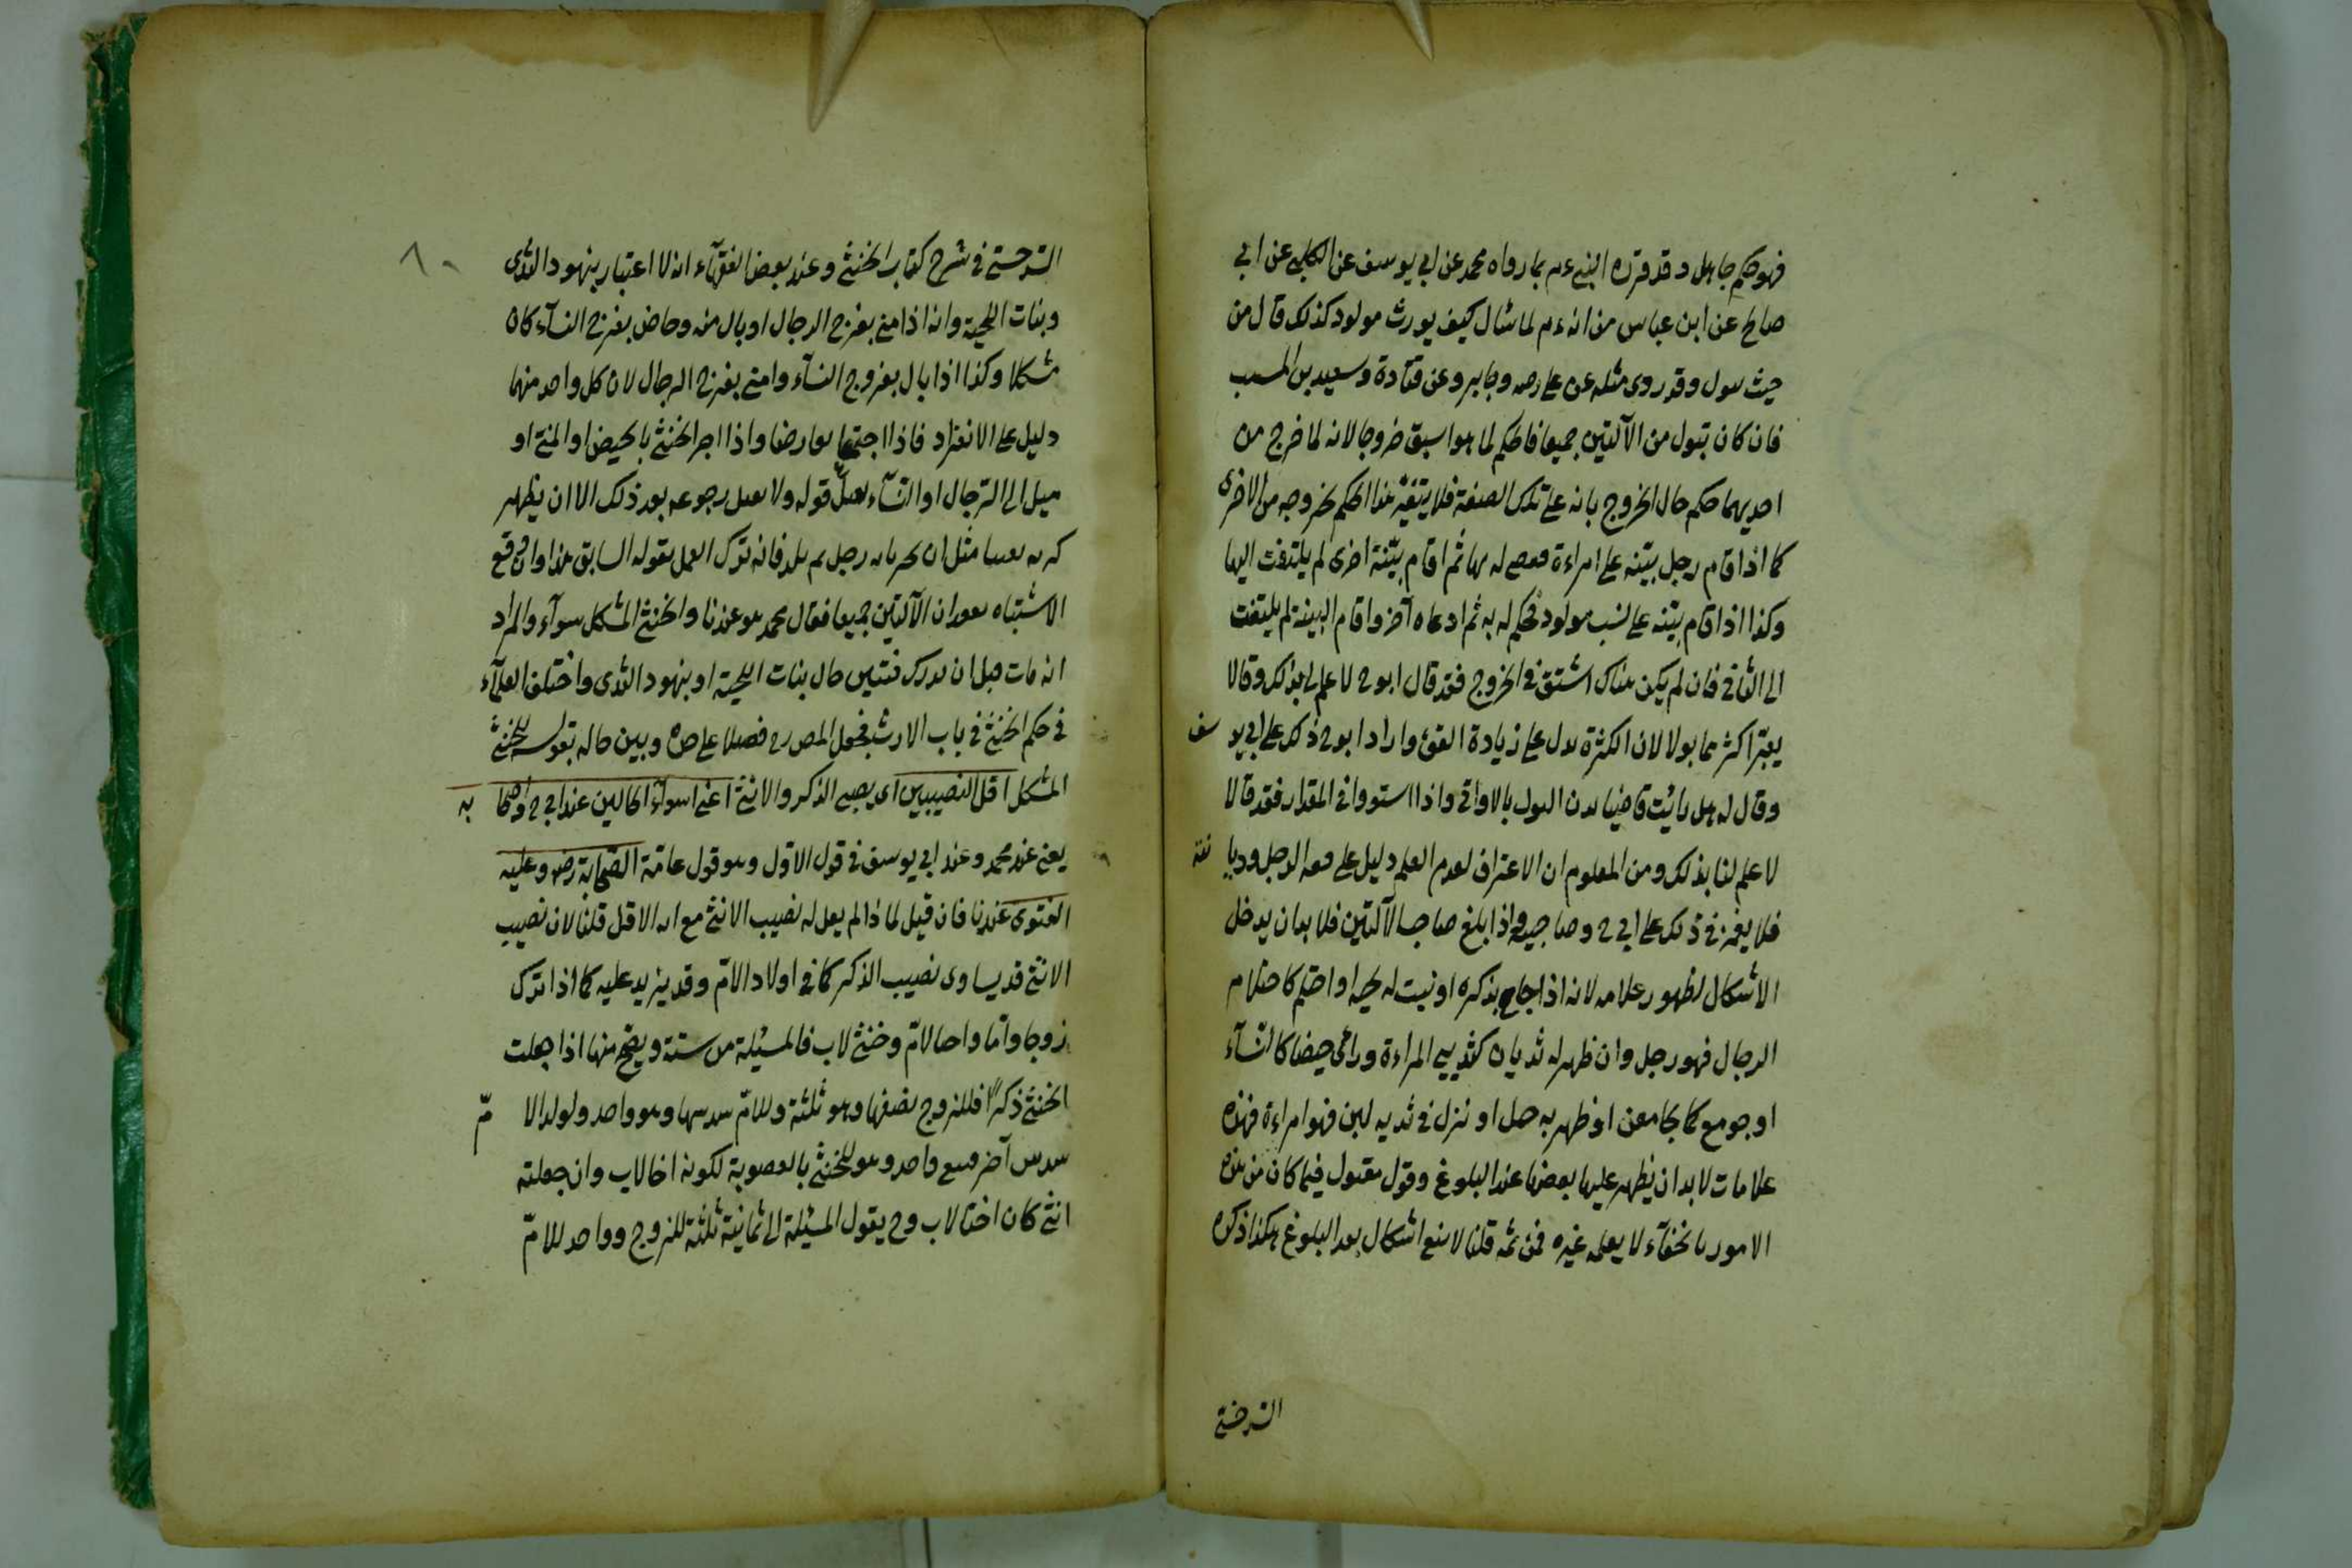 فهو حكم جاهل وقد قرره النبي ءم بما رواه محمد عن ابي يوسف عن الكلبي عن ابي
صالح عن ابن عباس من انه ءم لما سٔال كيف يورث مولود كذلك قال من
حيث سول وقد روى مثله عن على رضه وجابر وعن قتادة وسعيد بن المسب
فان كان تبول من الآلتين جميعا فالحكم لما هو اسبق خروجا لانه لما خرج من
احديهما حكم حال الخروج بانه على تلك الصفة فلا يتغيّر هذا الحكم بخروجه من الاخرى
كما اذا اقام رجل بيّنه على امراءة فقصى له بها ثم اقام بيّنة اخرى لم يلتفت اليها
وكذا اذا اقام بيّنه على نسب مولود فحكم له به ثم ادعاه آخر واقام البينة لم يلتفت
الى الثانى فان لم يكن هناك اسبق فى الخروج فقد قال ابو ح لا علم لى بذلك وقالا
يعتبر اكثرهما بولا لان الكثرة تدل على زيادة القوة واراد ابو ح ذلك على ابى يو سف
وقال له هل رائيت قاضيا يزن البول بالاواقى واذا استووا فى المقدار فقد قالا
لا علم لنا بذلك ومن المعلوم ان الاعتراف لعدم العلم دليل على فقه الرجل وديا نته
فلا يغمز فى ذلك على ابى ح وصاحبيه واذا بلغ صاحب الآلتين فلا بد ان يدخل
الاشكال لظهور علامه لانه اذا جامع بذكره او نبت له لحيه او احتلم كاحتلام
الرجال فهو رجل وان ظهر له ثديان كثديي المراءة ورائ حيضا كالنّسآء
او جومع كما يجامعن او ظهر به حبل او نزل فى ثديه لبن فهو امراءة فهذه
علامات لا بد ان يظهر عليها بعضها عند البلوغ وقول مقبول فيما كان من هذه
الامور باخفآء لا يعلمه غيره فمن ثمه قلنا لا يبقى اشكال بعد البلوغ هكذا ذكره
السرخسي
٨٠
السرخسي فى شرح كتاب الخنثى وعند بعض الفقهآء انه لا اعتبار بنهود الثدى
ونبات اللحية وانه اذا امنى بفرج الرجال او بال منه وحاض بفرج النسآء كان
مشكلا وكذا اذا بال بفروج النسآء وامنى بفرج الرجال لان كل واحد منهما
دليل على الانفراد فاذا اجتمعا تعارضا واذا اخبر الخنثى بالحيض او المنى او
ميل الى الرّجال او النّسآء يقبل قوله ولا يقبل رجوعه بعد ذلك الا ان يظهر
كذبه يقينا مثل ان يخبر بانه رجل ثم يلد فانه يترك العمل بقوله السابق هذا وان وقع
الاشتباه بفقدان الآلتين جميعا فقال محمد هو عندنا والخنثى المشكل سوآء والمراد
انه مات قبل ان يدرك فيتبين حال بنات اللحية او بنهود الثدى واختلف العلمآء
فى حكم الخنثى فى باب الارث فجعل المص رح فصلا على حده وبين حاله بقوله للخنثى
المشكل اقل النصيبين اى نصيبى الذكر والانثى اعنى اسواء الحالين عند ابى ح واصحا به
يعنى عند محمد وعند ابي يوسف فى قول الاوّل وهو قول عامّة الصّحابة رض وعليه
الفتوى عندنا فان قيل لماذا لم يقل له نصيب الانثى مع انه الاقل قلنا لان نصيب
الانثى قد يساوى نصيب الذكر كما فى اولاد الامّ وقد يزيد عليه كما اذا ترك
زوجا وامّا واخا لامّ وخنثى لاب فالمسئلة من ستة ويصح منها اذا جعلت
الخنثى ذكرًا فللزوج نصفها وهو ثلثة وللامّ سدسها وهو واحد ولولد الا مّ
سدس آخر فبقى واحد وهو للخنثى بالعصوبة لكونه اخا لاب وان جعلته
انثى كان اختا لاب وح يقول المسئلة الى ثمانية ثلثة للزوج وواحد للامّ